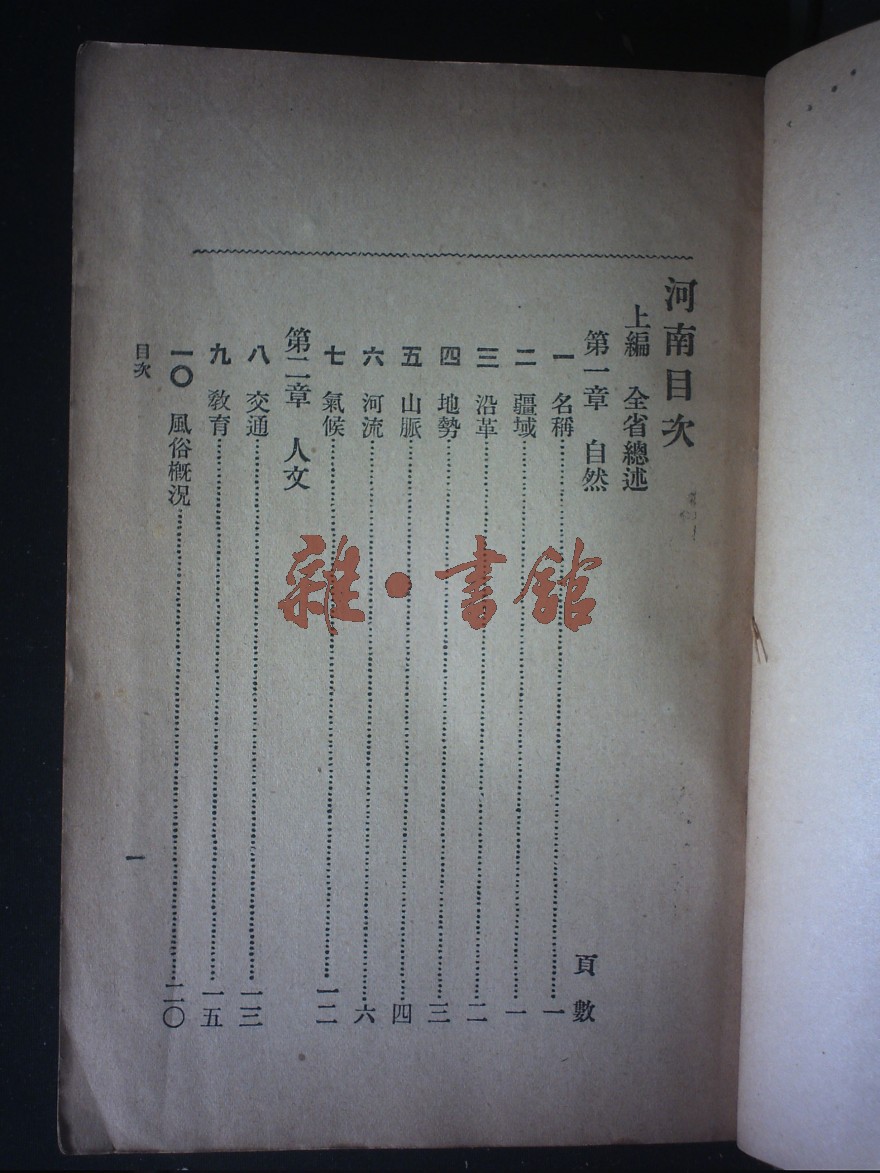 河南目次
上編　全省總述
第一章　自然　頁數
一　名稱……一
二　疆域……一
三　沿革……二
四　地勢……三
五　山脈……四
六　河流……六
七　氣候……一二
第二章　人文
八　交通……一三
九　敎育……一五
一〇　風俗槪況……二〇
目次　一
雜·書館